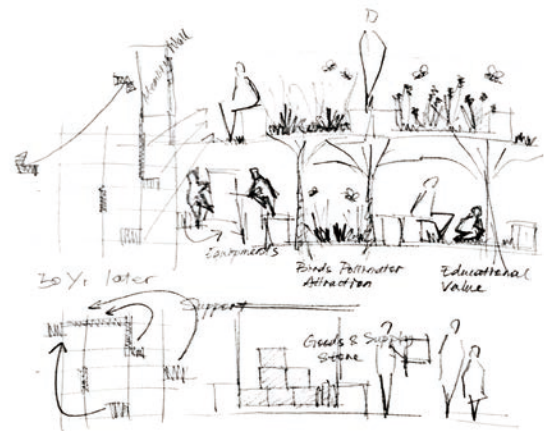 Memory Wall
Environments
Birds Pollinator
Attraction
Educational
Value
30 Yr later
Support
Goods & Supply
Store